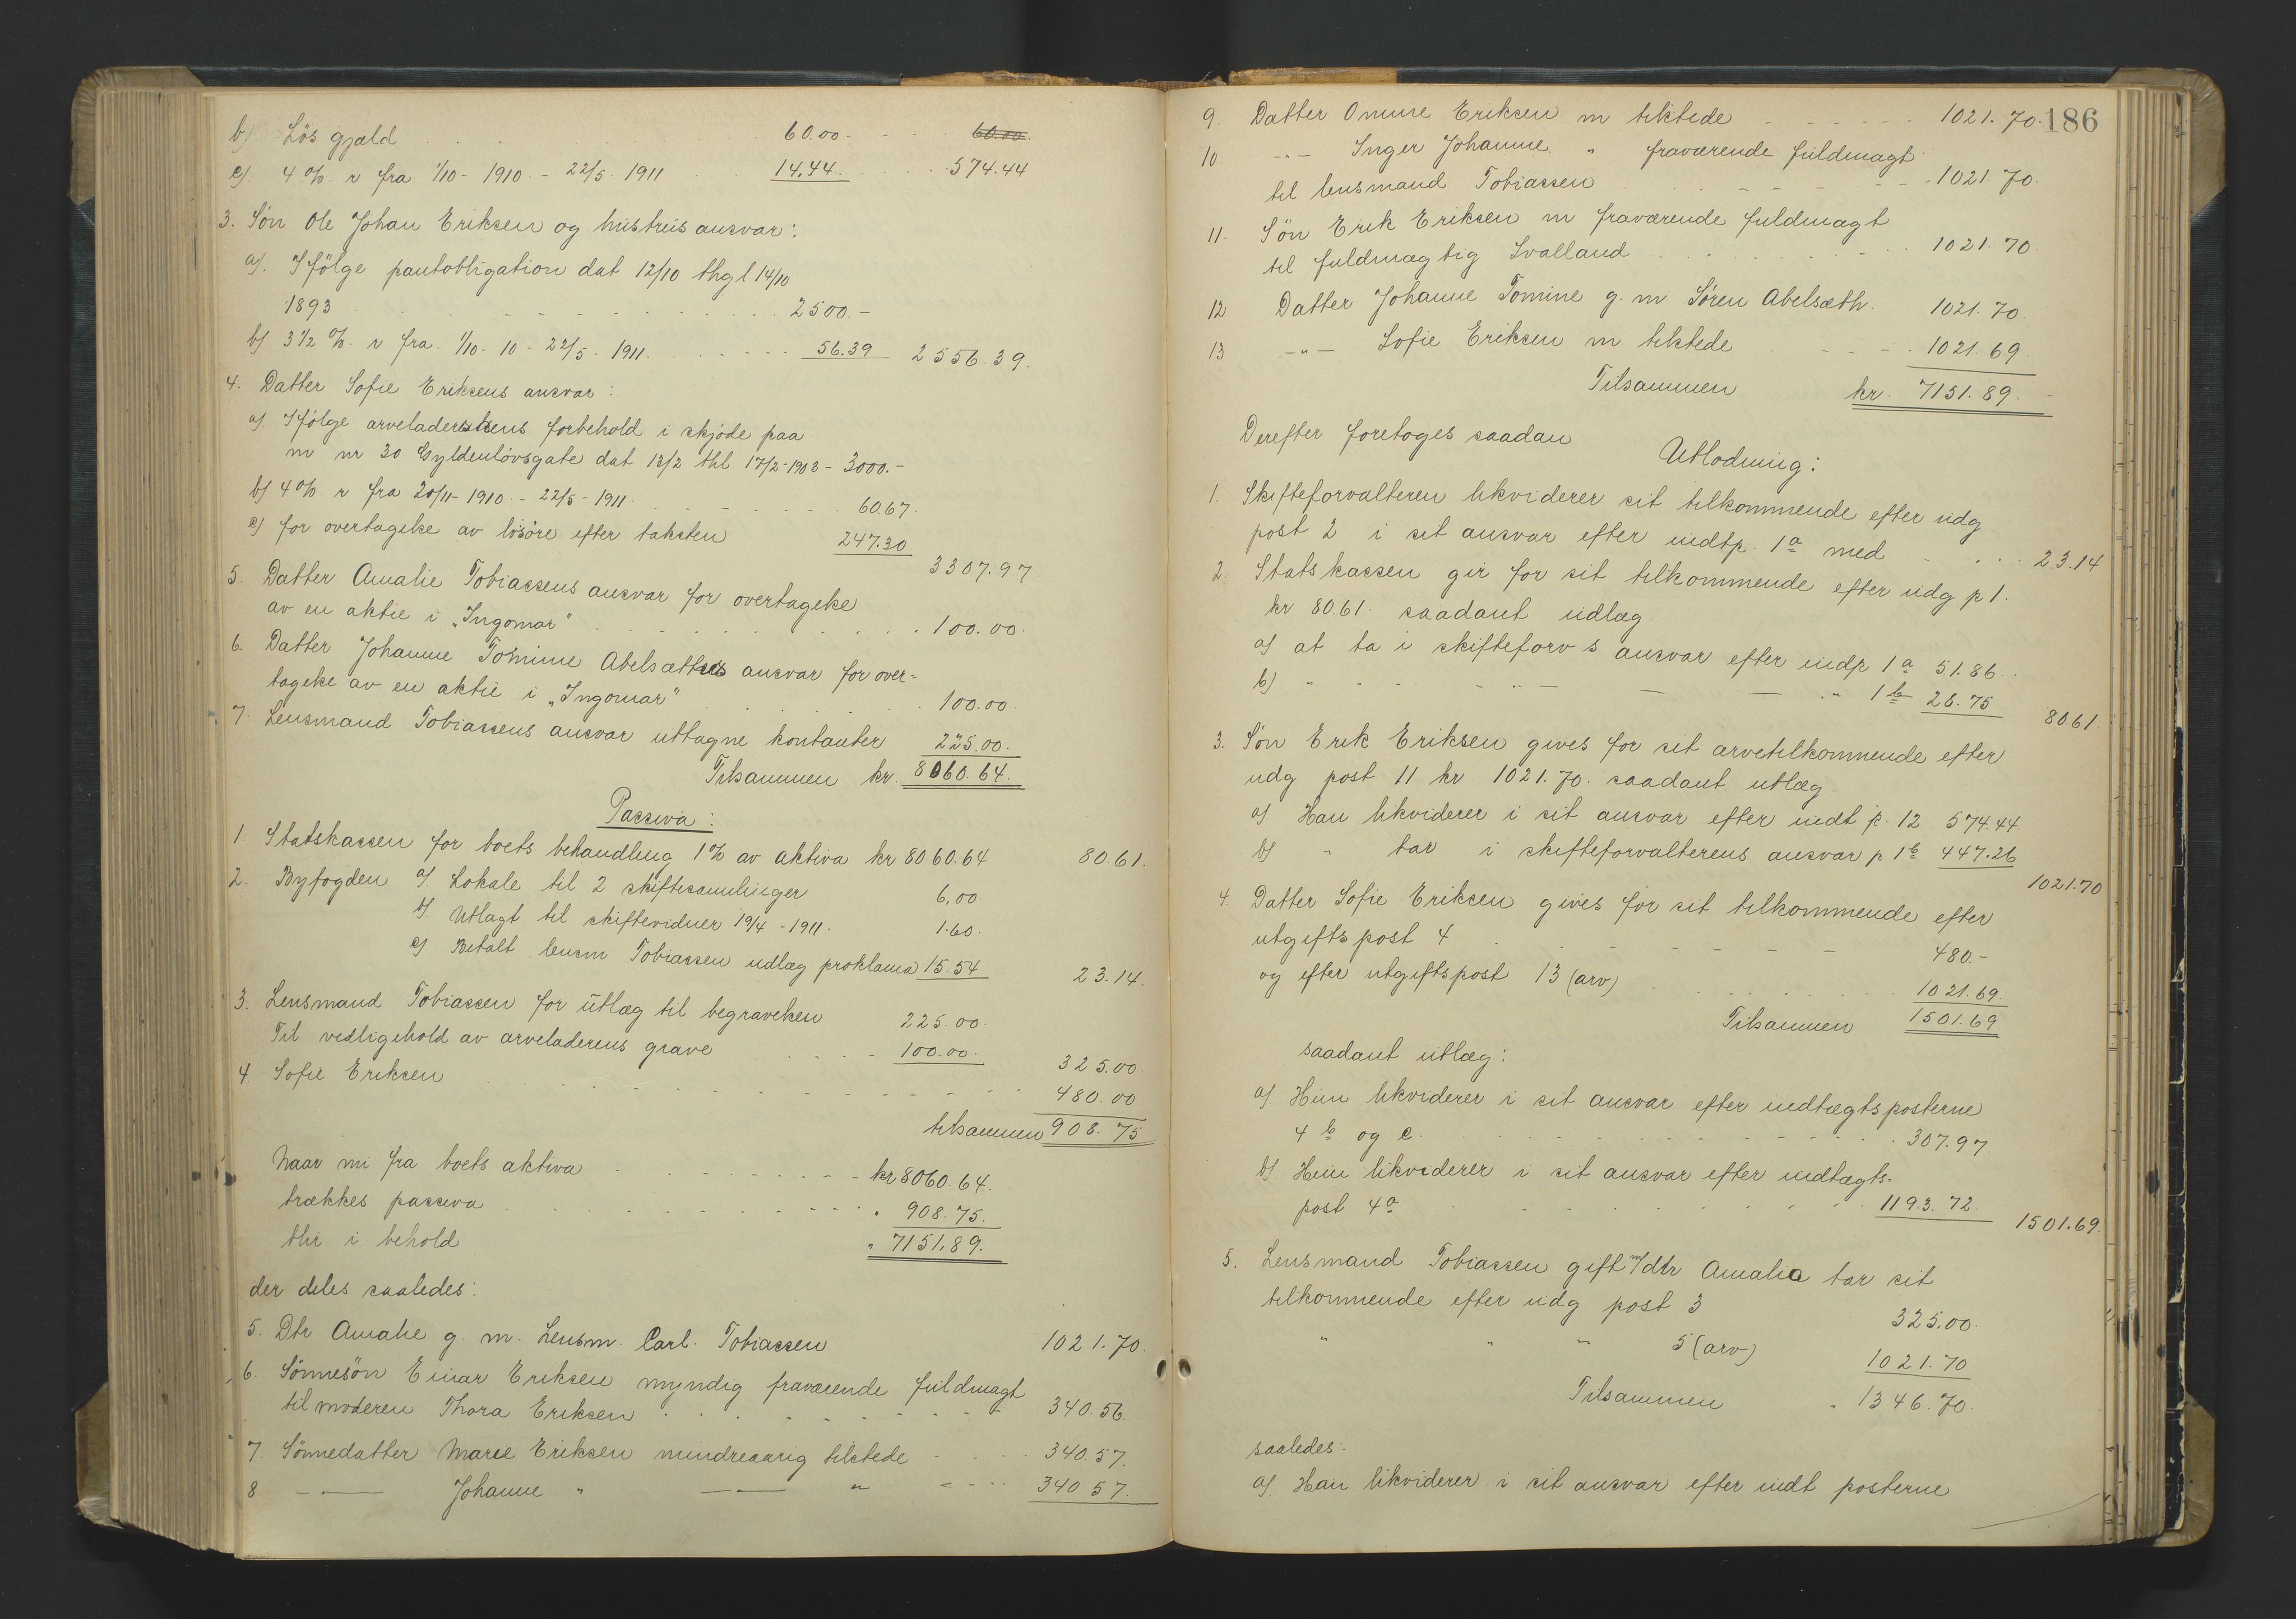 b) Løs gjæld . . . 60.00 - - 60.00
c) 4 % r fra 1/10 - 1910 - 22/5 - 1911 . . 14.44 . . . . 574.44
3. Søn Ole Johan Eriksen og hustrus ansvar:
a). Ifølge pantobligation dat 12/10 thgl 14/10
1893 . . . . . . . . 2500.-
b) 3 1/2 % r fra 1/10 - 10 - 22/5 - 1911 . . . . . 56.39 2556.39.
4. Datter Sofie Eriksens ansvar:
a) Ifølge arveladerskens forbehold i skjøde paa
m nr 30 Gyldenløvsgate dat 13/2 thl 17/2-1903 - 3000.-
b) 4 % r fra 20/11 - 1910 - 22/5 - 1911 . . . . . 60.67.
c) for overtagelse av løsøre efter taksten 247.30
3307.97
5. Datter Amalie Tobiassens ansvar for overtagelse
av en aktie i „Ingomar" . . . . . . . 100.00.
6. Datter Johanne Tomine Abelsæths ansvar for over-
tagelse av en aktie i „Ingomar" . . . . . 100.00
7. Lensmand Tobiassens ansvar uttagne kontanter 225.00.
Tilsammen kr. 8060.64.
Passiva:
1. Statskassen for boets behandling 1 % av aktiva kr 8060.64 80.61.
2. Byfogden a). Lokale til 2 skiftesamlinger 6.00.
b). Utlagt til skiftevidner 19/4 - 1911. 1.60.
c) Betalt lensm Tobiassen udlæg proklama 15.54 23.14.
3. Lensmand Tobiassen for utlæg til begravelsen 225.00.
Til vedligehold av arveladerens grave . . . . 100.00. 325.00.
4. Sofie Eriksen . . . . . . . . . 480.00
tilsammen 908.75
Naar nu fra boets aktiva . . . . . . . kr 8060.64.
trækkes passiva . . . . . . . . . " 908.75.
blir i behold " 7151.89.
der deles saaledes:
5. Dtr Amalie g. m. Lensm. Carl. Tobiassen 1021.70.
6. Sønnesøn Einar Eriksen myndig fraværende fuldmagt
til moderen Thora Eriksen . . . . . . . 340.56.
7. Sønnedatter Marie Eriksen mindreaarig tilstede . . . . 340.57.
8 — — Johanne " — — " - - - - 340 57.
186
9. Datter Omine Eriksen m tilstede . . . . . . 1021.70.
10. -"- Inger Johanne " fraværende fuldmagt
til lensmand Tobiassen . . . . . . . 1021.70.
11. Søn Erik Eriksen m fraværende fuldmagt
til fuldmægtig Svalland . . . . . . . 1021.70
12 Datter Johanne Tomine g. m Søren Abelsæth. 1021.70.
13 -"- Sofie Eriksen m tilstede . . . . 1021.69.
Tilsammen kr. 7151.89.
Derefter foretoges saadan
Utlodning:
1. Skifteforvalteren likviderer sit tilkommende efter udg
post 2 i sit ansvar efter indtp. 1a med . . . . 23.14
2. Statskassen gir for sit tilkommende efter udg p 1.
kr 80.61. saadant udlæg
a) at ta i skifteforv s ansvar efter indp 1a 51.86.
b) " - - - " — — — " 1b 28.75 80.61
3. Søn Erik Eriksen gives for sit arvetilkommende efter
udg post 11 kr 1021.70. saadant utlæg.
a) Han likviderer i sit ansvar efter indt p. 12 574.44
b) " tar i skifteforvalterens ansvar p. 1b 447.26
1021.70
4. Datter Sofie Eriksen gives for sit tilkommende efter
utgiftspost 4 . . . . . . . 480.-
og efter utgiftspost 13 (arv) . . . . . . 1021.69.
Tilsammen 1501.69
saadant utlæg:
a) Hun likviderer i sit ansvar efter indtægtsposterne
4 b og c . . . . . . . . . 307.97.
b) Hun likviderer i sit ansvar efter indtægts-
post 4a . . . . . . . . . 1193.72. 1501.69.
5. Lensmand Tobiassen gift m/ dtr Amalia tar sit
tilkommende efter udg post 3 325.00.
" " " 5 (arv) 1021.70
Tilsammen " 1346.70.
saaledes:
a) Han likviderer i sit ansvar efter indt posterne